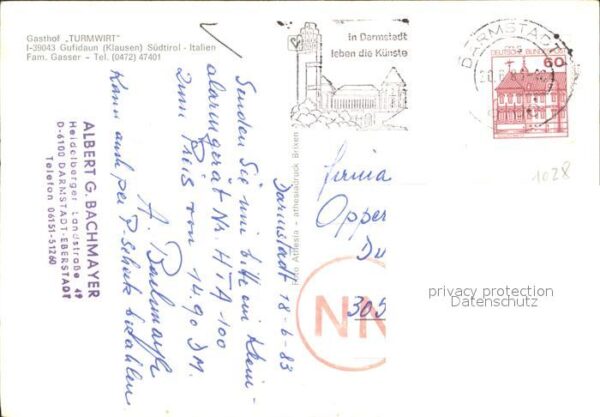 Gasthof „TURMWIRT"
I-39043 Gufidaun (Klausen) Südtirol - Italien
Fam. Gasser - Tel. (0472) 47401
Darmstadt 18-6-83
Senden Sie mir bitte ein Klein-
alarmgerät Nr. HTA-100
zum Preis von 14.90 DM.
A. Bachmayer
Kann auch per P-scheck bezahlen
ALBERT G. BACHMAYER
Heidelberger Landstraße 49
D-6100 DARMSTADT-EBERSTADT
Telefon 06151-51260
in Darmstadt
leben die Künste
DARMSTADT
DEUTSCHE BUNDESPOST
60
1028
Firma
Opper
305
NN
privacy protection
Datenschutz